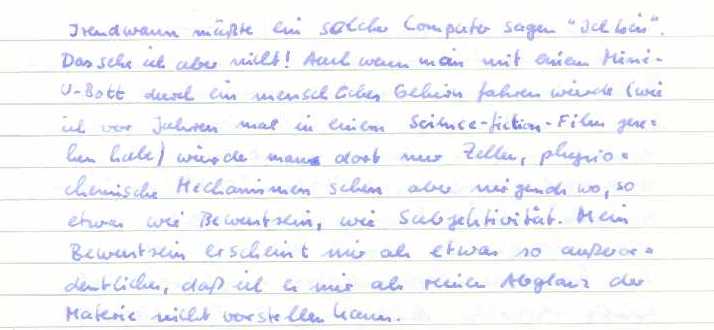 Irendwann müßte ein solcher Computer sagen "Ich bin".
Das sehe ich aber nicht! Auch wenn man mit einem Mini-
U-Bott durch ein menschliches Gehirn fahren würde (wie
ich vor Jahren mal in einem Science-fiction-Film gese-
hen habe) würde man dort nur Zellen, physio-
chemische Mechanismen sehen aber nirgendwo, so
etwas wie Bewustsein, wie Subjektivität. Mein
Bewustsein erscheint mir als etwas so außeror-
dentliches, daß ich es mir als reinen Abglanz der
Materie nicht vorstellen kann.